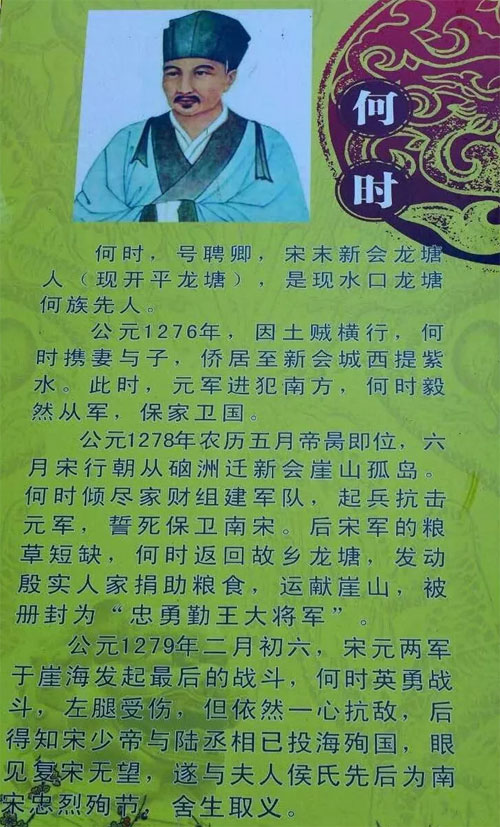 何
时
何时，号聘卿，宋末新会龙塘
人（现开平龙塘），是现水口龙塘
何族先人。
公元1276年，因土贼横行，何
时携妻与子，侨居至新会城西提紫
水。此时，元军进犯南方，何时毅
然从军，保家卫国。
公元1278年农历五月帝昺即位，六
月宋行朝从硇洲迁新会崖山孤岛。
何时倾尽家财组建军队，起兵抗击
元军，誓死保卫南宋。后宋军的粮
草短缺，何时返回故乡龙塘，发动
殷实人家捐助粮食，运献崖山，被
册封为“忠勇勤王大将军”。
公元1279年二月初六，宋元两军
于崖海发起最后的战斗，何时英勇战
斗，左腿受伤，但依然一心抗敌，后
得知宋少帝与陆丞相已投海殉国，眼
见复宋无望，遂与夫人侯氏先后为南
宋忠烈殉节，舍生取义。